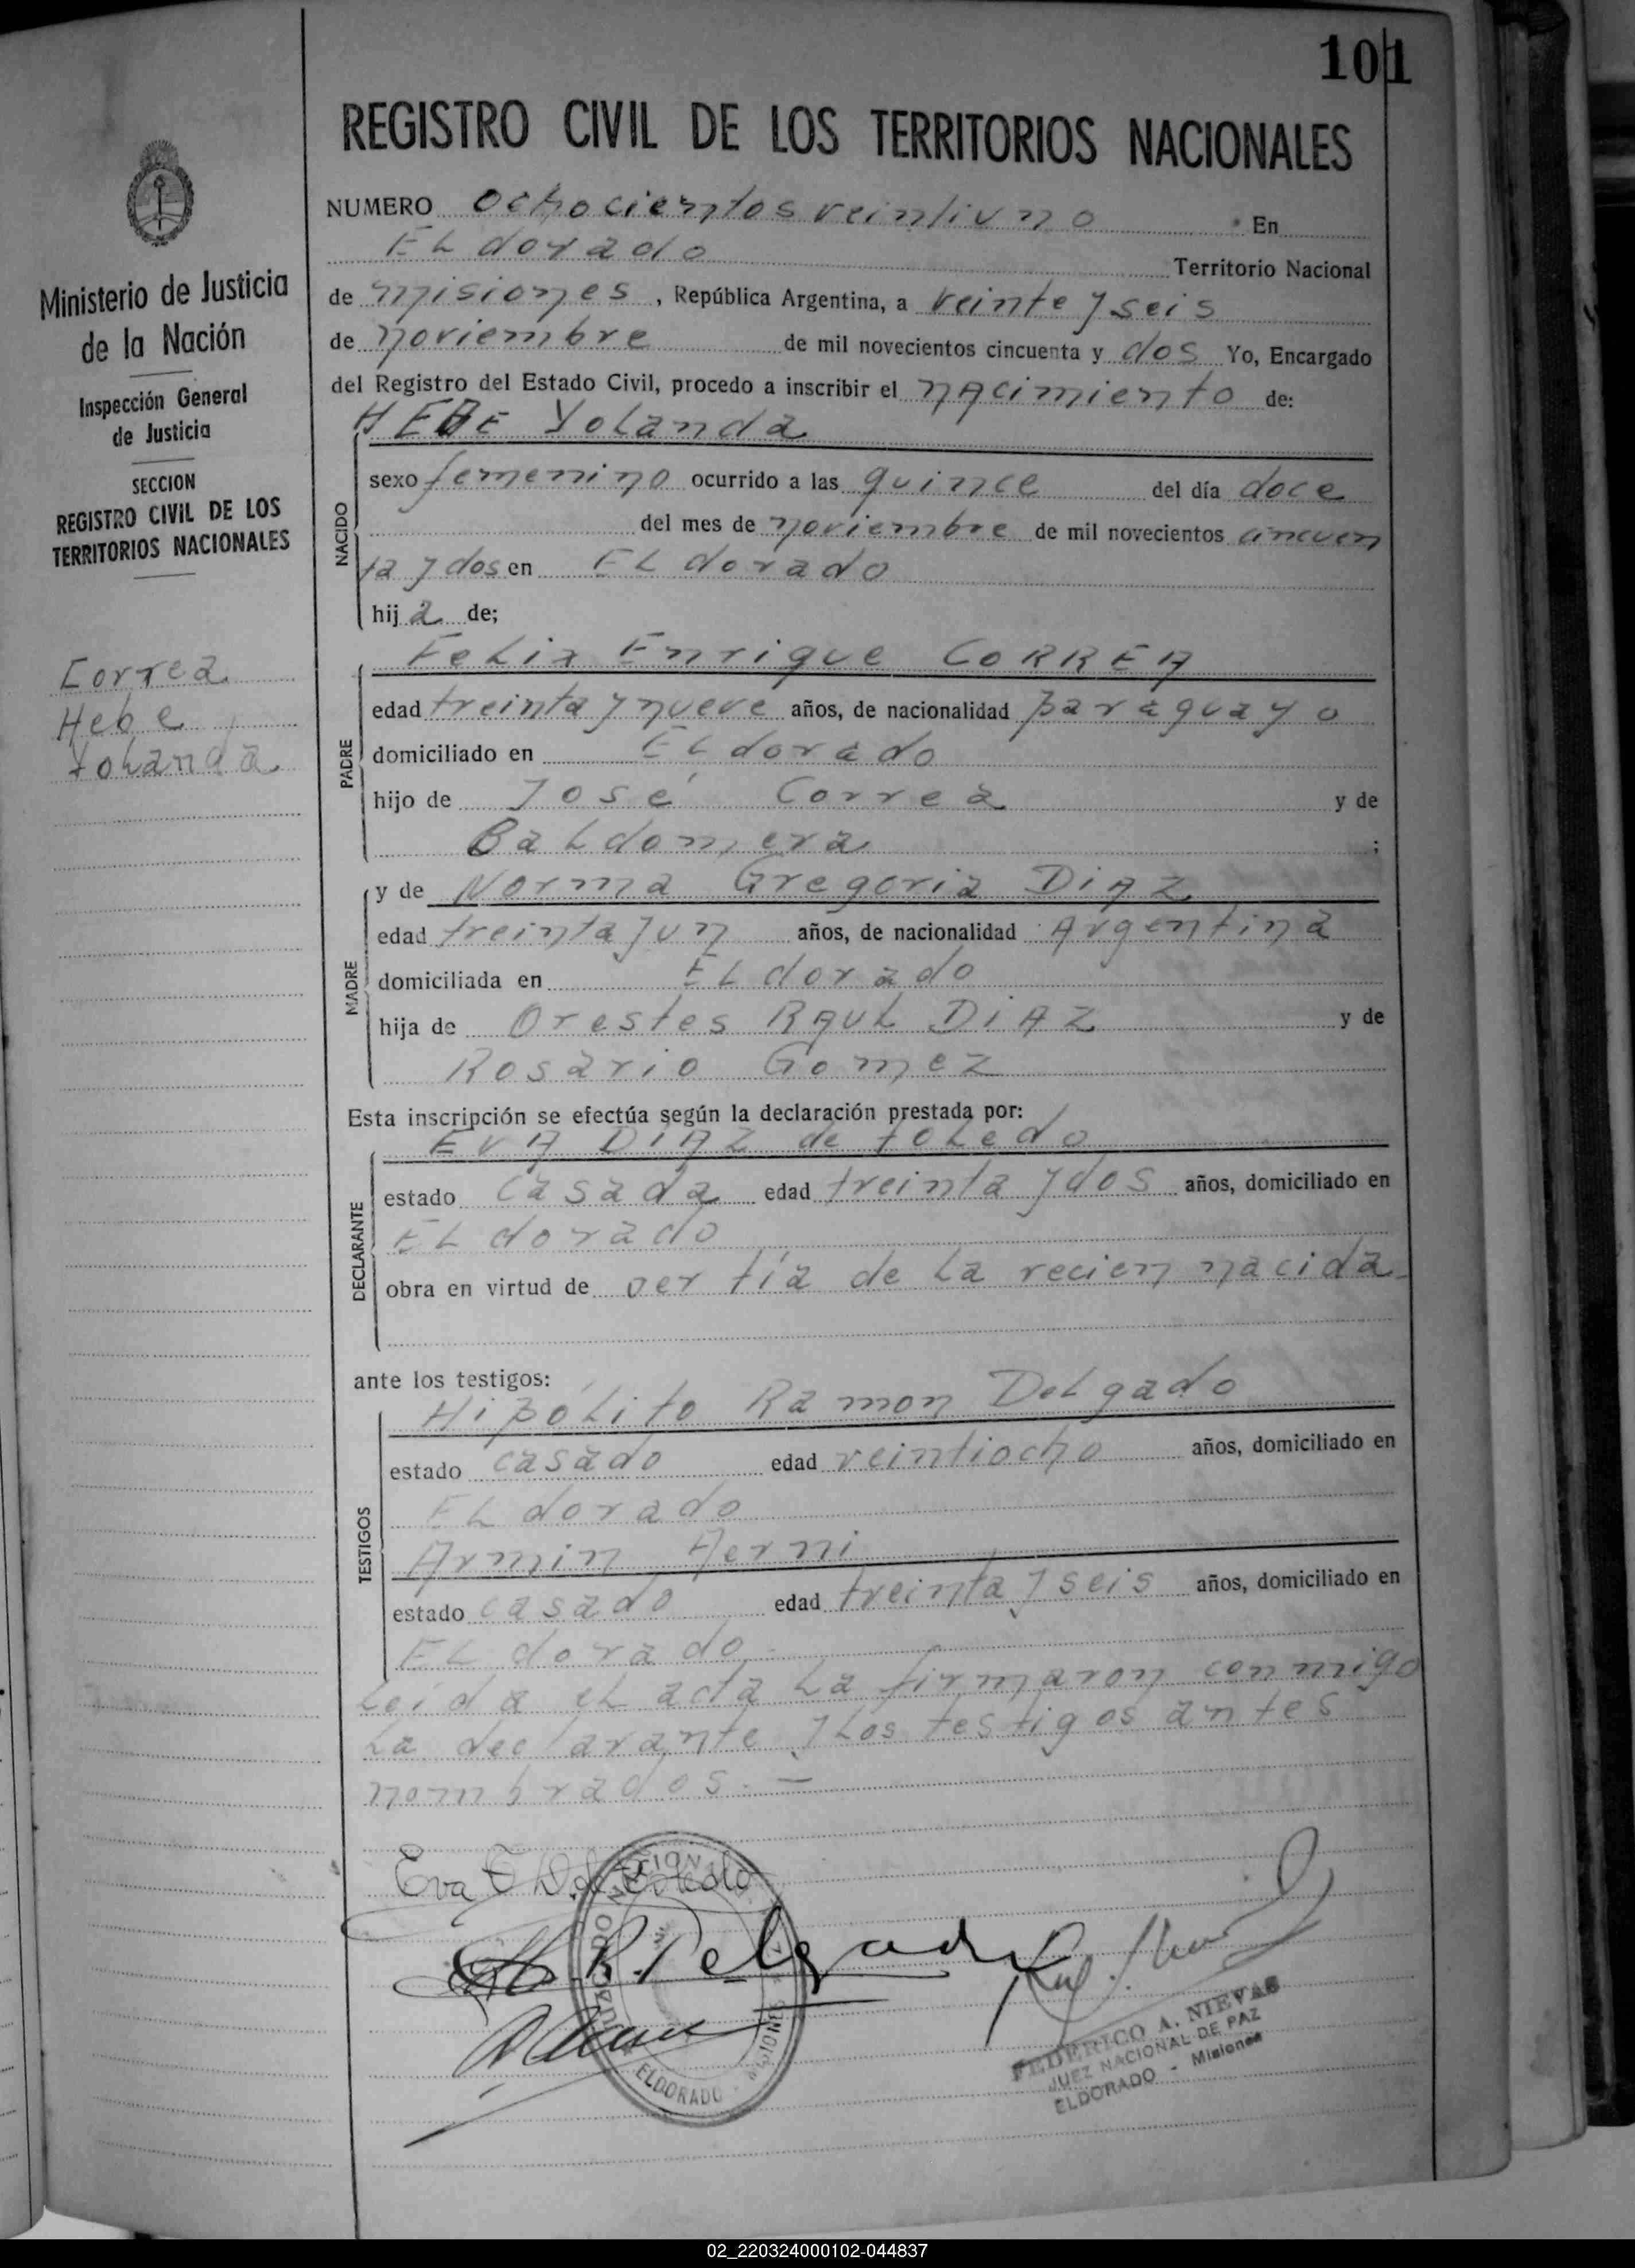 101
REGISTRO CIVIL DE LOS TERRITORIOS NACIONALES
Ministerio de Justicia
de la Nación
Inspección General
de Justicia
SECCION
REGISTRO CIVIL DE LOS
TERRITORIOS NACIONALES
Correa
Hebe
Yolanda
NUMERO ochocientos veintiuno En
ELdorado Territorio Nacional
de misiones, República Argentina, a veinte y seis
de noviembre de mil novecientos cincuenta y dos Yo, Encargado
del Registro del Estado Civil, procedo a inscribir el nacimiento de:
HEBE Yolanda
NACIDO
sexo femenino ocurrido a las quince del día doce
del mes de noviembre de mil novecientos cincuen
ta y dos en ELdorado
hija de;
FeLix Enrique CORREA
PADRE
edad treinta y nueve años, de nacionalidad paraguayo
domiciliado en ELdorado
hijo de José Correa y de
BaLdomera ;
MADRE
y de Norma Gregoria DiAZ
edad treinta y un años, de nacionalidad Argentina
domiciliada en ELdorado
hija de Orestes RAUL DiAZ y de
Rosario Gomez
Esta inscripción se efectúa según la declaración prestada por:
EVA DiAZ de toLedo
DECLARANTE
estado casada edad treinta y dos años, domiciliado en
ELdorado
obra en virtud de ser tía de La recien nacida
ante los testigos:
TESTIGOS
HipóLito Ramon DeLgado
estado casado edad veintiocho años, domiciliado en
ELdorado
Armin Aerni
estado casado edad treinta y seis años, domiciliado en
ELdorado
Leida eL acta La firmaron conmigo
La declarante y Los testigos antes
nombrados. —
Eva D. de Toledo
H. R. Delgado
ELDORADO
FEDERICO A. NIEVAS
JUEZ NACIONAL DE PAZ
ELDORADO - Misiones
02_220324000102-044837